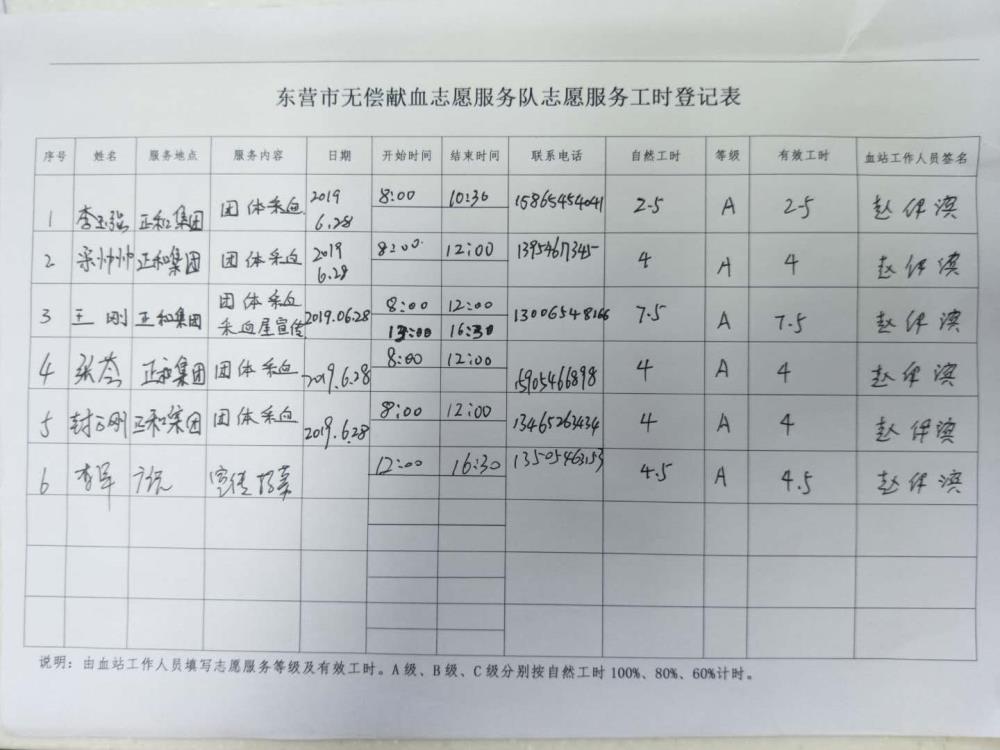 东营市无偿献血志愿服务队志愿服务工时登记表
序号 姓名 服务地点 服务内容 日期 开始时间 结束时间 联系电话 自然工时 等级 有效工时 血站工作人员签名
1 李玉强 正和集团 团体采血 2019 6.28 8:00 10:30 15865454041 2.5 A 2.5 赵伴滨
2 宋帅帅 正和集团 团体采血 2019 6.28 8:00 12:00 1395467345 4 A 4 赵伴滨
3 王刚 正和集团 团体采血 2019.06.28 8:00 12:00 13006548166 7.5 A 7.5 赵伴滨
采血屋宣传 13:00 16:30
4 张苓 正和集团 团体采血 2019.6.28 8:00 12:00 15905466898 4 A 4 赵伴滨
5 封玉刚 正和集团 团体采血 2019.6.28 8:00 12:00 13465263434 4 A 4 赵伴滨
6 李军 宣传招募 12:00 16:30 13505463153 4.5 A 4.5 赵伴滨
说明：由血站工作人员填写志愿服务等级及有效工时。A级、B级、C级分别按自然工时100%、80%、60%计时。